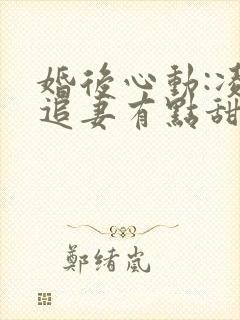 婚後心動:凌
追妻有點甜
鄭绪岚